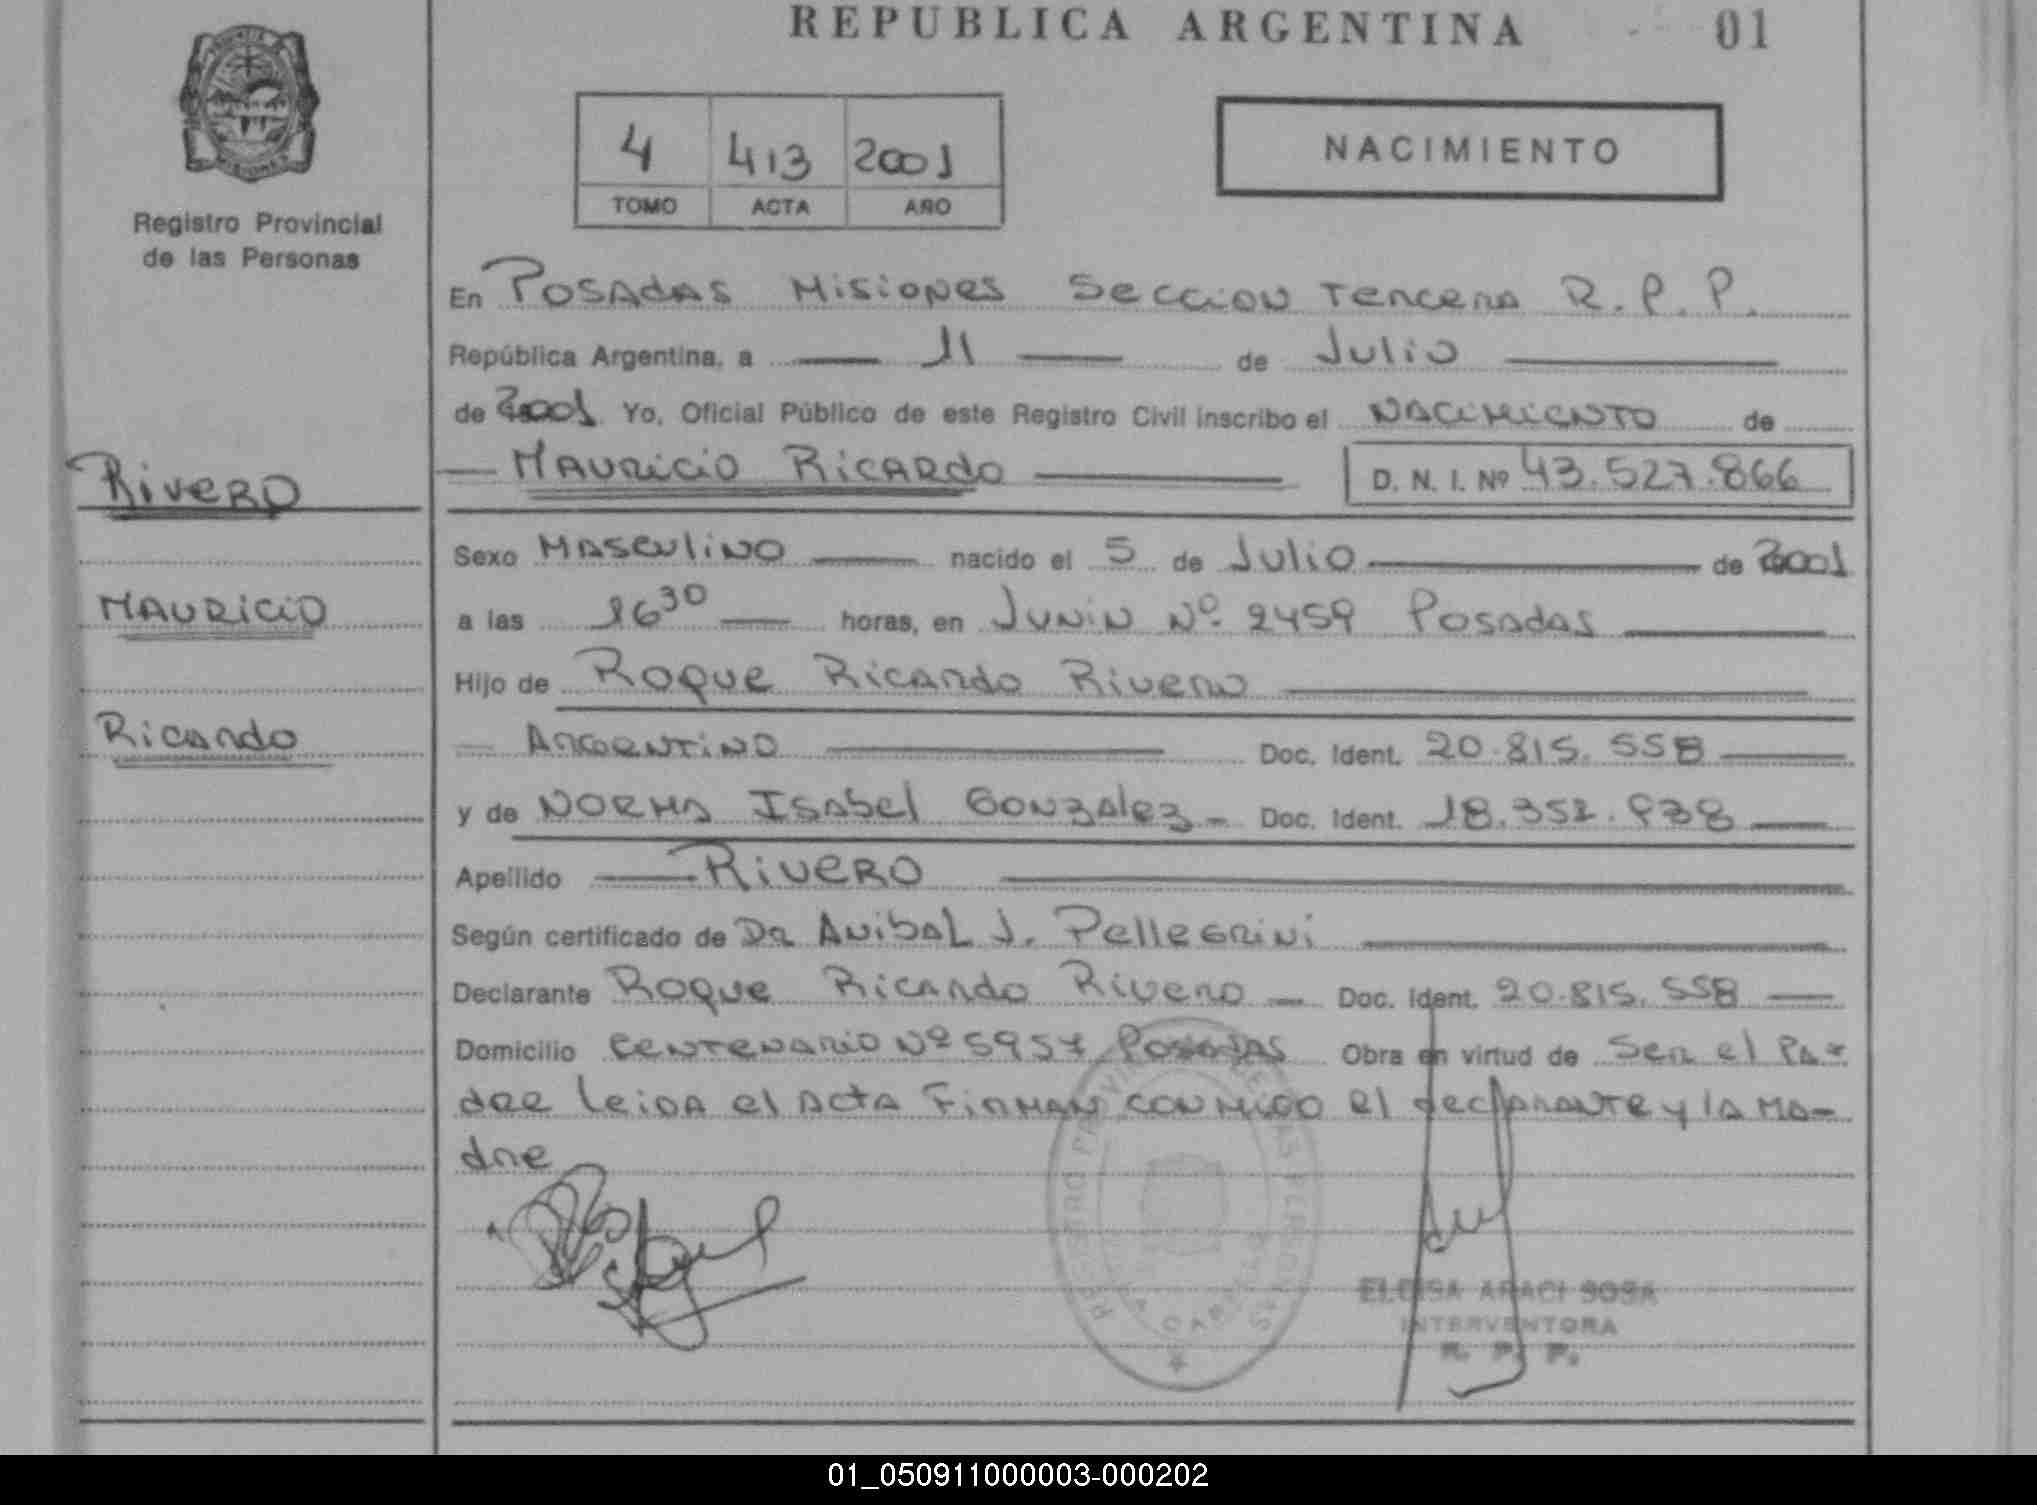 REPUBLICA ARGENTINA 01
Registro Provincial
de las Personas
4 413 2001
TOMO ACTA AÑO
NACIMIENTO
En Posadas Misiones Seccion Tercera R.P.P.
República Argentina, a 11 de Julio
de 2001 Yo, Oficial Público de este Registro Civil inscribo el NACIMIENTO de
Rivero
Mauricio Ricardo D. N. I. Nº 43.527.866
Sexo Masculino nacido el 5 de Julio de 2001
Mauricio
a las 16 30 horas, en Junin Nº 2459 Posadas
Hijo de Roque Ricardo Rivero
Ricardo
Argentino Doc. Ident. 20.815.558
y de Norma Isabel Gonzalez - Doc. Ident. 18.352.938
Apellido Rivero
Según certificado de Dr Anibal J. Pellegrini
Declarante Roque Ricardo Rivero Doc. Ident. 20.815.558
Domicilio Centenario Nº 5957 Posadas Obra en virtud de Ser el Pa-
dre leida el acta Firman conmigo el declarante y la ma-
dre
ELOISA ARACI SOSA
INTERVENTORA
R. P. P.
01_050911000003-000202